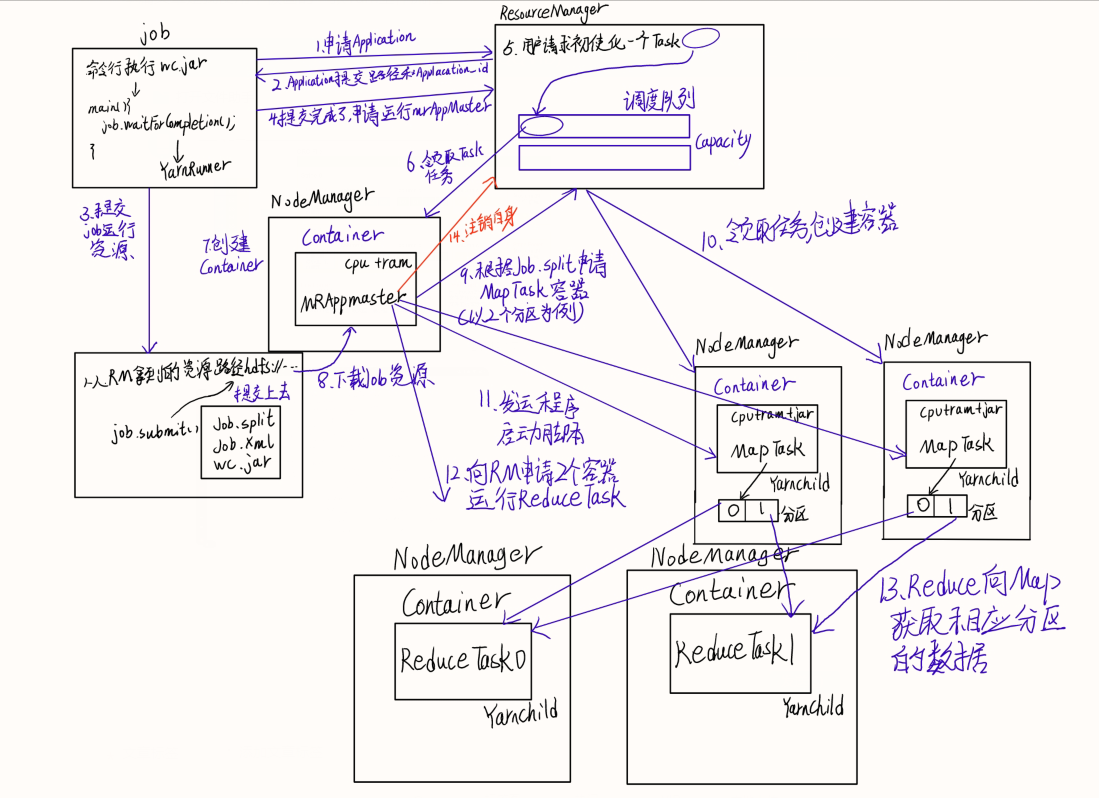 job
命令行执行 wc.jar
main(){
job.waitForCompletion();
}
YarnRunner
1.申请Application
2.Application提交路径和Applacation_id
4.提交完成了,申请运行mrAppMaster
ResourceManager
5.用户请求初使化一个Task
调度队列
Capacity
6.领取Task
任务
3.提交
job运行
资源
7.创建
Container
NodeManager
Container
cpu+ram
MRAppmaster
14.注销自身
9.根据Job.split申请
MapTask容器
(以2个分区为例)
10.领取任务,创建容器
从RM拿到的资源路径hdfs://...
提交上去
job.submit();
Job.split
Job.xml
wc.jar
8.下载Job资源
11.发送程序
启动脚本
12.向RM申请2个容器
运行ReduceTask
NodeManager
Container
cpu+ram+jar
MapTask
Yarnchild
0 1 分区
NodeManager
Container
cpu+ram+jar
MapTask
Yarnchild
0 1 分区
NodeManager
Container
ReduceTask0
Yarnchild
NodeManager
Container
ReduceTask1
Yarnchild
13.Reduce向Map
获取相应分区
的数据